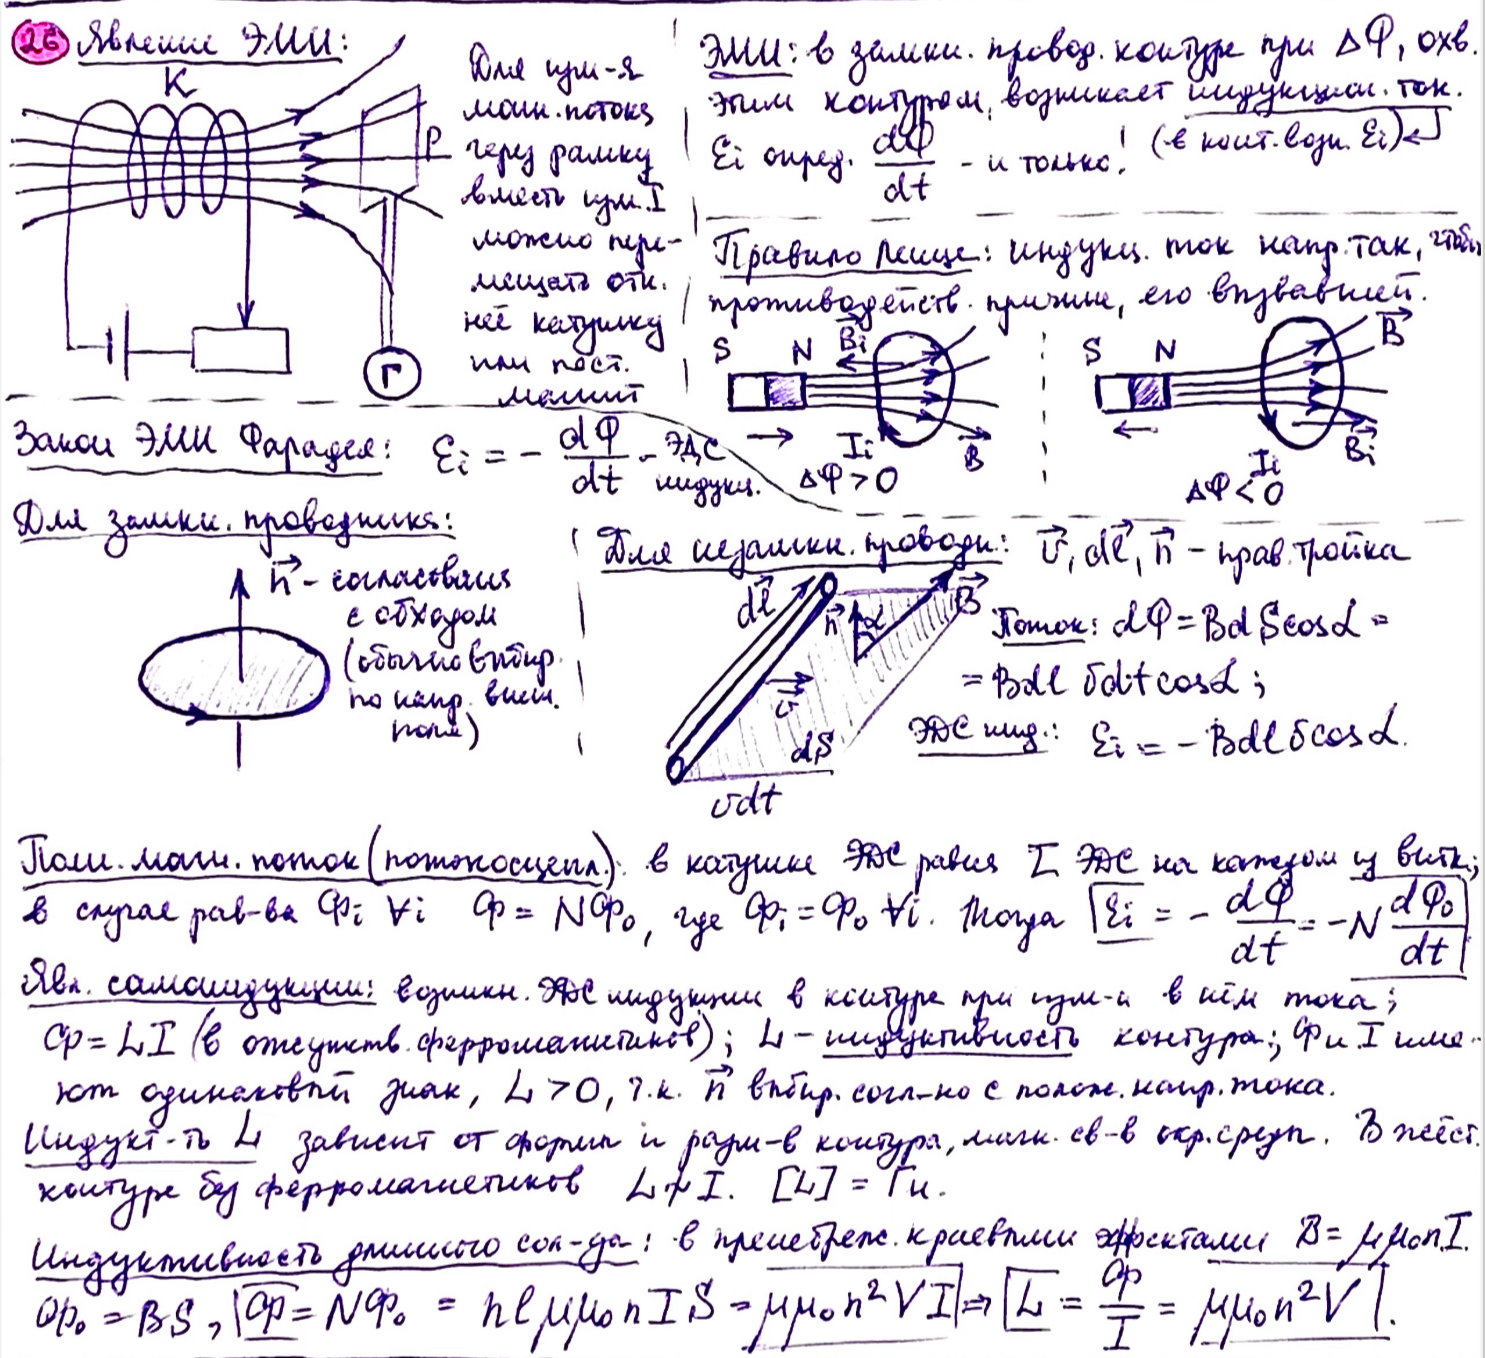 26 Явление ЭМИ:
К
Р
Г
Для изм-я
магн. потока
через рамку
вместо изм. I
можно пере-
мещать отн.
неё катушку
или пост.
магнит
ЭМИ: в замкн. провод. контуре при ΔΦ, охв.
этим контуром, возникает индукцион. ток.
Ɛi опред. dΦ/dt - и только! (в конт. возн. Ɛi)
Правило Ленца: индукц. ток напр. так, чтобы
противодейств. причине, его вызвавшей.
S N B⃗i
Ii B⃗
ΔΦ > 0
S N B⃗
Ii B⃗i
ΔΦ < 0
Закон ЭМИ Фарадея: Ɛi = - dΦ/dt - ЭДС индукц.
Для замкн. проводника:
n⃗ - согласована
с обходом
(обычно выбир.
по напр. внеш.
поля)
Для незамкн. проводн.: v⃗, dl⃗, n⃗ - прав. тройка
dl⃗ n⃗ α B⃗
v⃗
dS
vdt
Поток: dΦ = BdScosα =
= Bdl vdt cosα;
ЭДС инд.: Ɛi = - Bdl v cosα.
Полн. магн. поток (потокосцепл.): в катушке ЭДС равна Σ ЭДС на каждом из витк.;
в случае рав-ва Φi ∀i Φ = NΦ₀, где Φi = Φ₀ ∀i. Тогда Ɛi = - dΦ/dt = -N dΦ₀/dt
Явл. самоиндукции: возникн. ЭДС индукции в контуре при изм-и в нём тока;
Φ = LI (в отсутств. ферромагнетиков); L - индуктивность контура; Φ и I име-
ют одинаковый знак, L > 0, т.к. n⃗ выбир. согл-но с полож. напр. тока.
Индукт-ть L зависит от формы и разм-в контура, магн. св-в окр. среды. В жёст.
контуре без ферромагнетиков L ≁ I. [L] = Гн.
Индуктивность длинного сол-да: в пренебреж. краевыми эффектами B = μμ₀nI.
Φ₀ = BS, Φ = NΦ₀ = nlμμ₀nIS = μμ₀n²VI ⇒ L = Φ/I = μμ₀n²V.